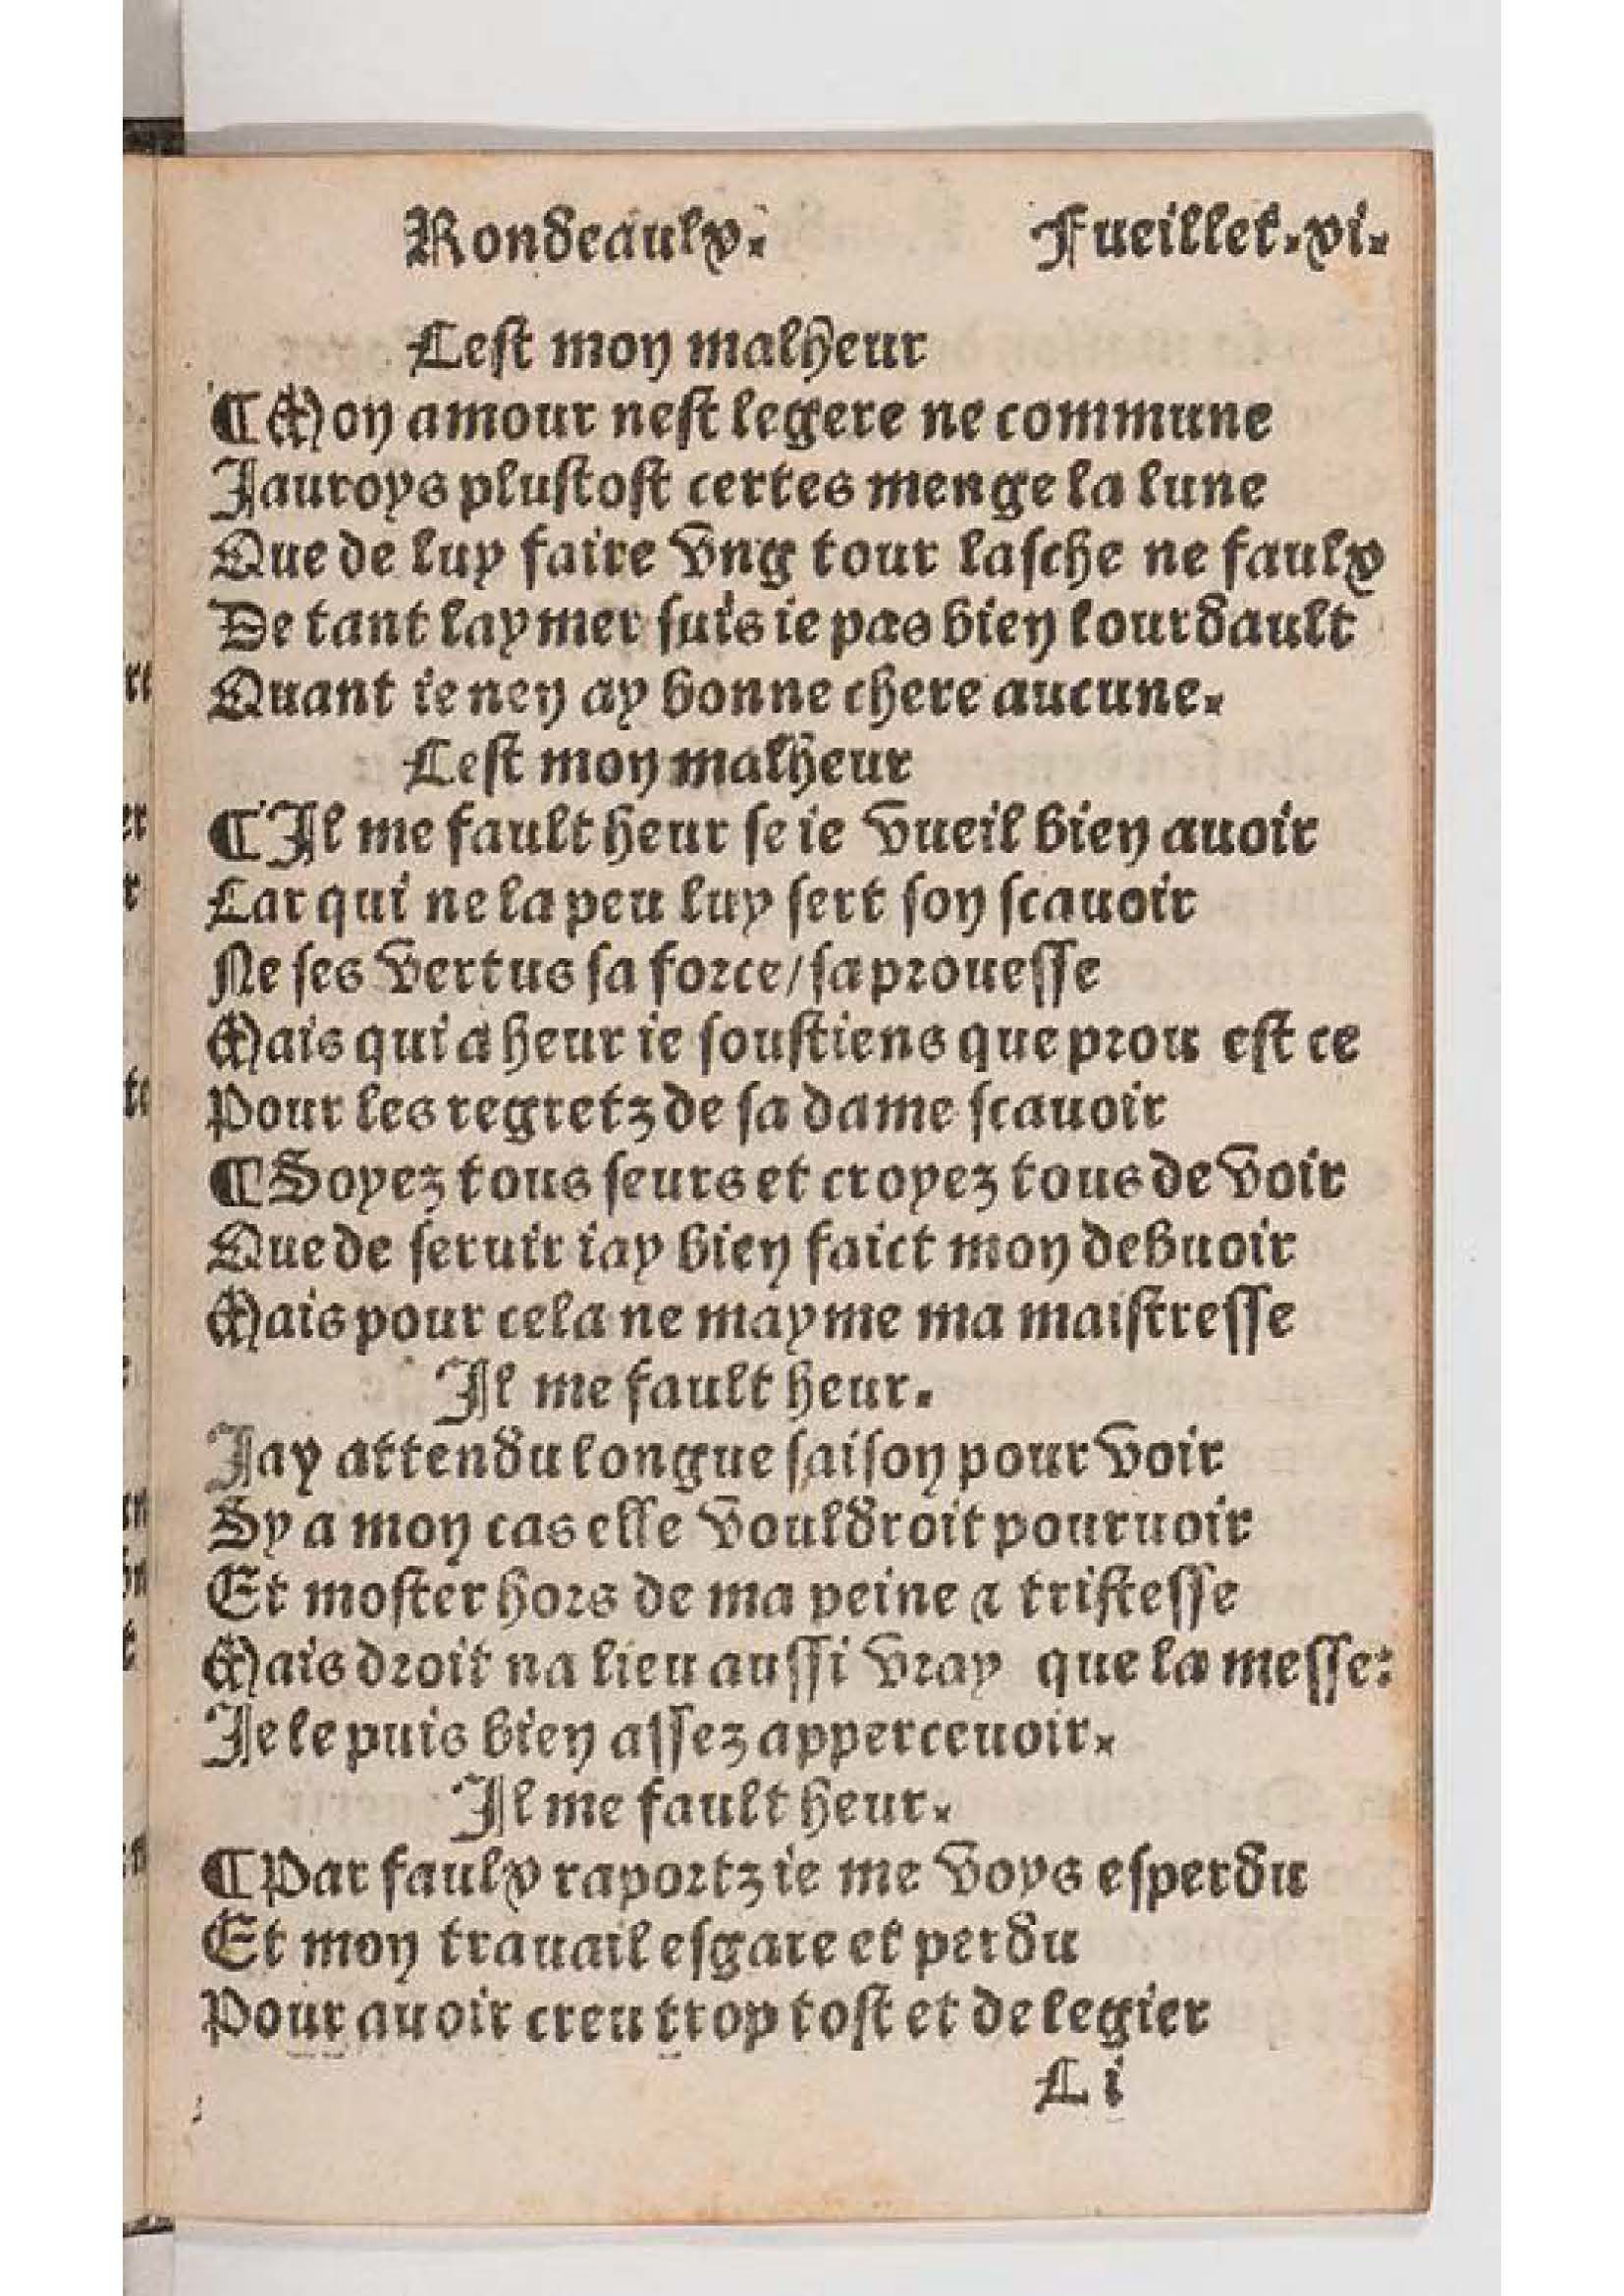 Rondeaulx. Fueillet. vi.
Cest mon malheur
¶ Mon amour nest legere ne commune
Jauroys plustost certes menge la lune
Que de luy faire vng tour lasche ne faulx
De tant laymer suis ie pas bien lourdault
Quant ie nen ay bonne chere aucune.
Cest mon malheur
¶ Il me fault heur se ie vueil bien auoir
Car qui ne la peu luy sert son scauoir
Ne ses vertus sa force/ sa prouesse
Mais qui a heur ie soustiens que prou est ce
Pour les regretz de sa dame scauoir
¶ Soyez tous seurs et croyez tous de voir
Que de seruir iay bien faict mon debuoir
Mais pour cela ne mayme ma maistresse
Il me fault heur.
Jay attendu longue saison pour voir
Sy a mon cas elle vouldroit pouruoir
Et moster hors de ma peine ⁊ tristesse
Mais droit na lieu aussi vray que la messe:
Je le puis bien assez apperceuoir.
Il me fault heur.
¶ Par faulx raportz ie me voys esperdu
Et mon trauail esgare et perdu
Pour auoir creu trop tost et de legier
C i